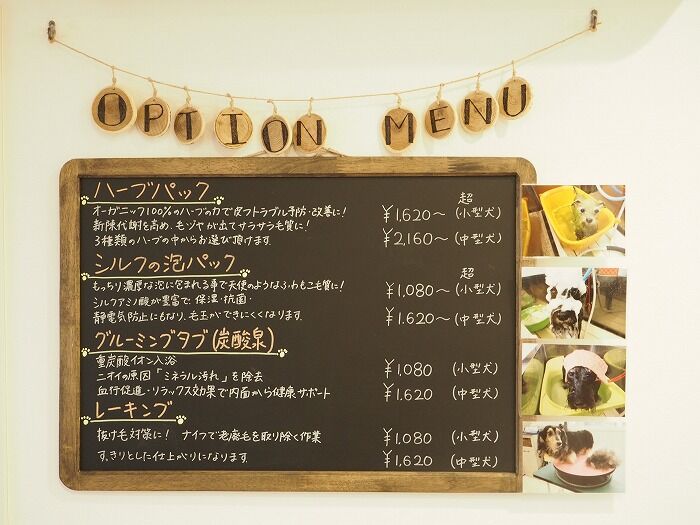 OPTION MENU
ハーブパック
オーガニック100%のハーブの力で皮フトラブル予防・改善に!
新陳代謝を高め、毛ヅヤが出てサラサラ毛質に!
3種類のハーブの中からお選び頂けます。
¥1,620〜 (超小型犬)
¥2,160〜 (中型犬)
シルクの泡パック
もっちり濃厚な泡に包まれる事で天使のようなふわもこ毛質に!
シルクアミノ酸が豊富で、保湿・抗菌・
静電気防止にもなり、毛玉ができにくくなります。
¥1,080〜 (超小型犬)
¥1,620〜 (中型犬)
グルーミングタブ(炭酸泉)
重炭酸イオン入浴
ニオイの原因「ミネラル汚れ」を除去
血行促進・リラックス効果で内面から健康サポート
¥1,080 (小型犬)
¥1,620 (中型犬)
レーキング
抜け毛対策に! ナイフで老廃毛を取り除く作業
すっきりとした仕上がりになります。
¥1,080 (小型犬)
¥1,620 (中型犬)